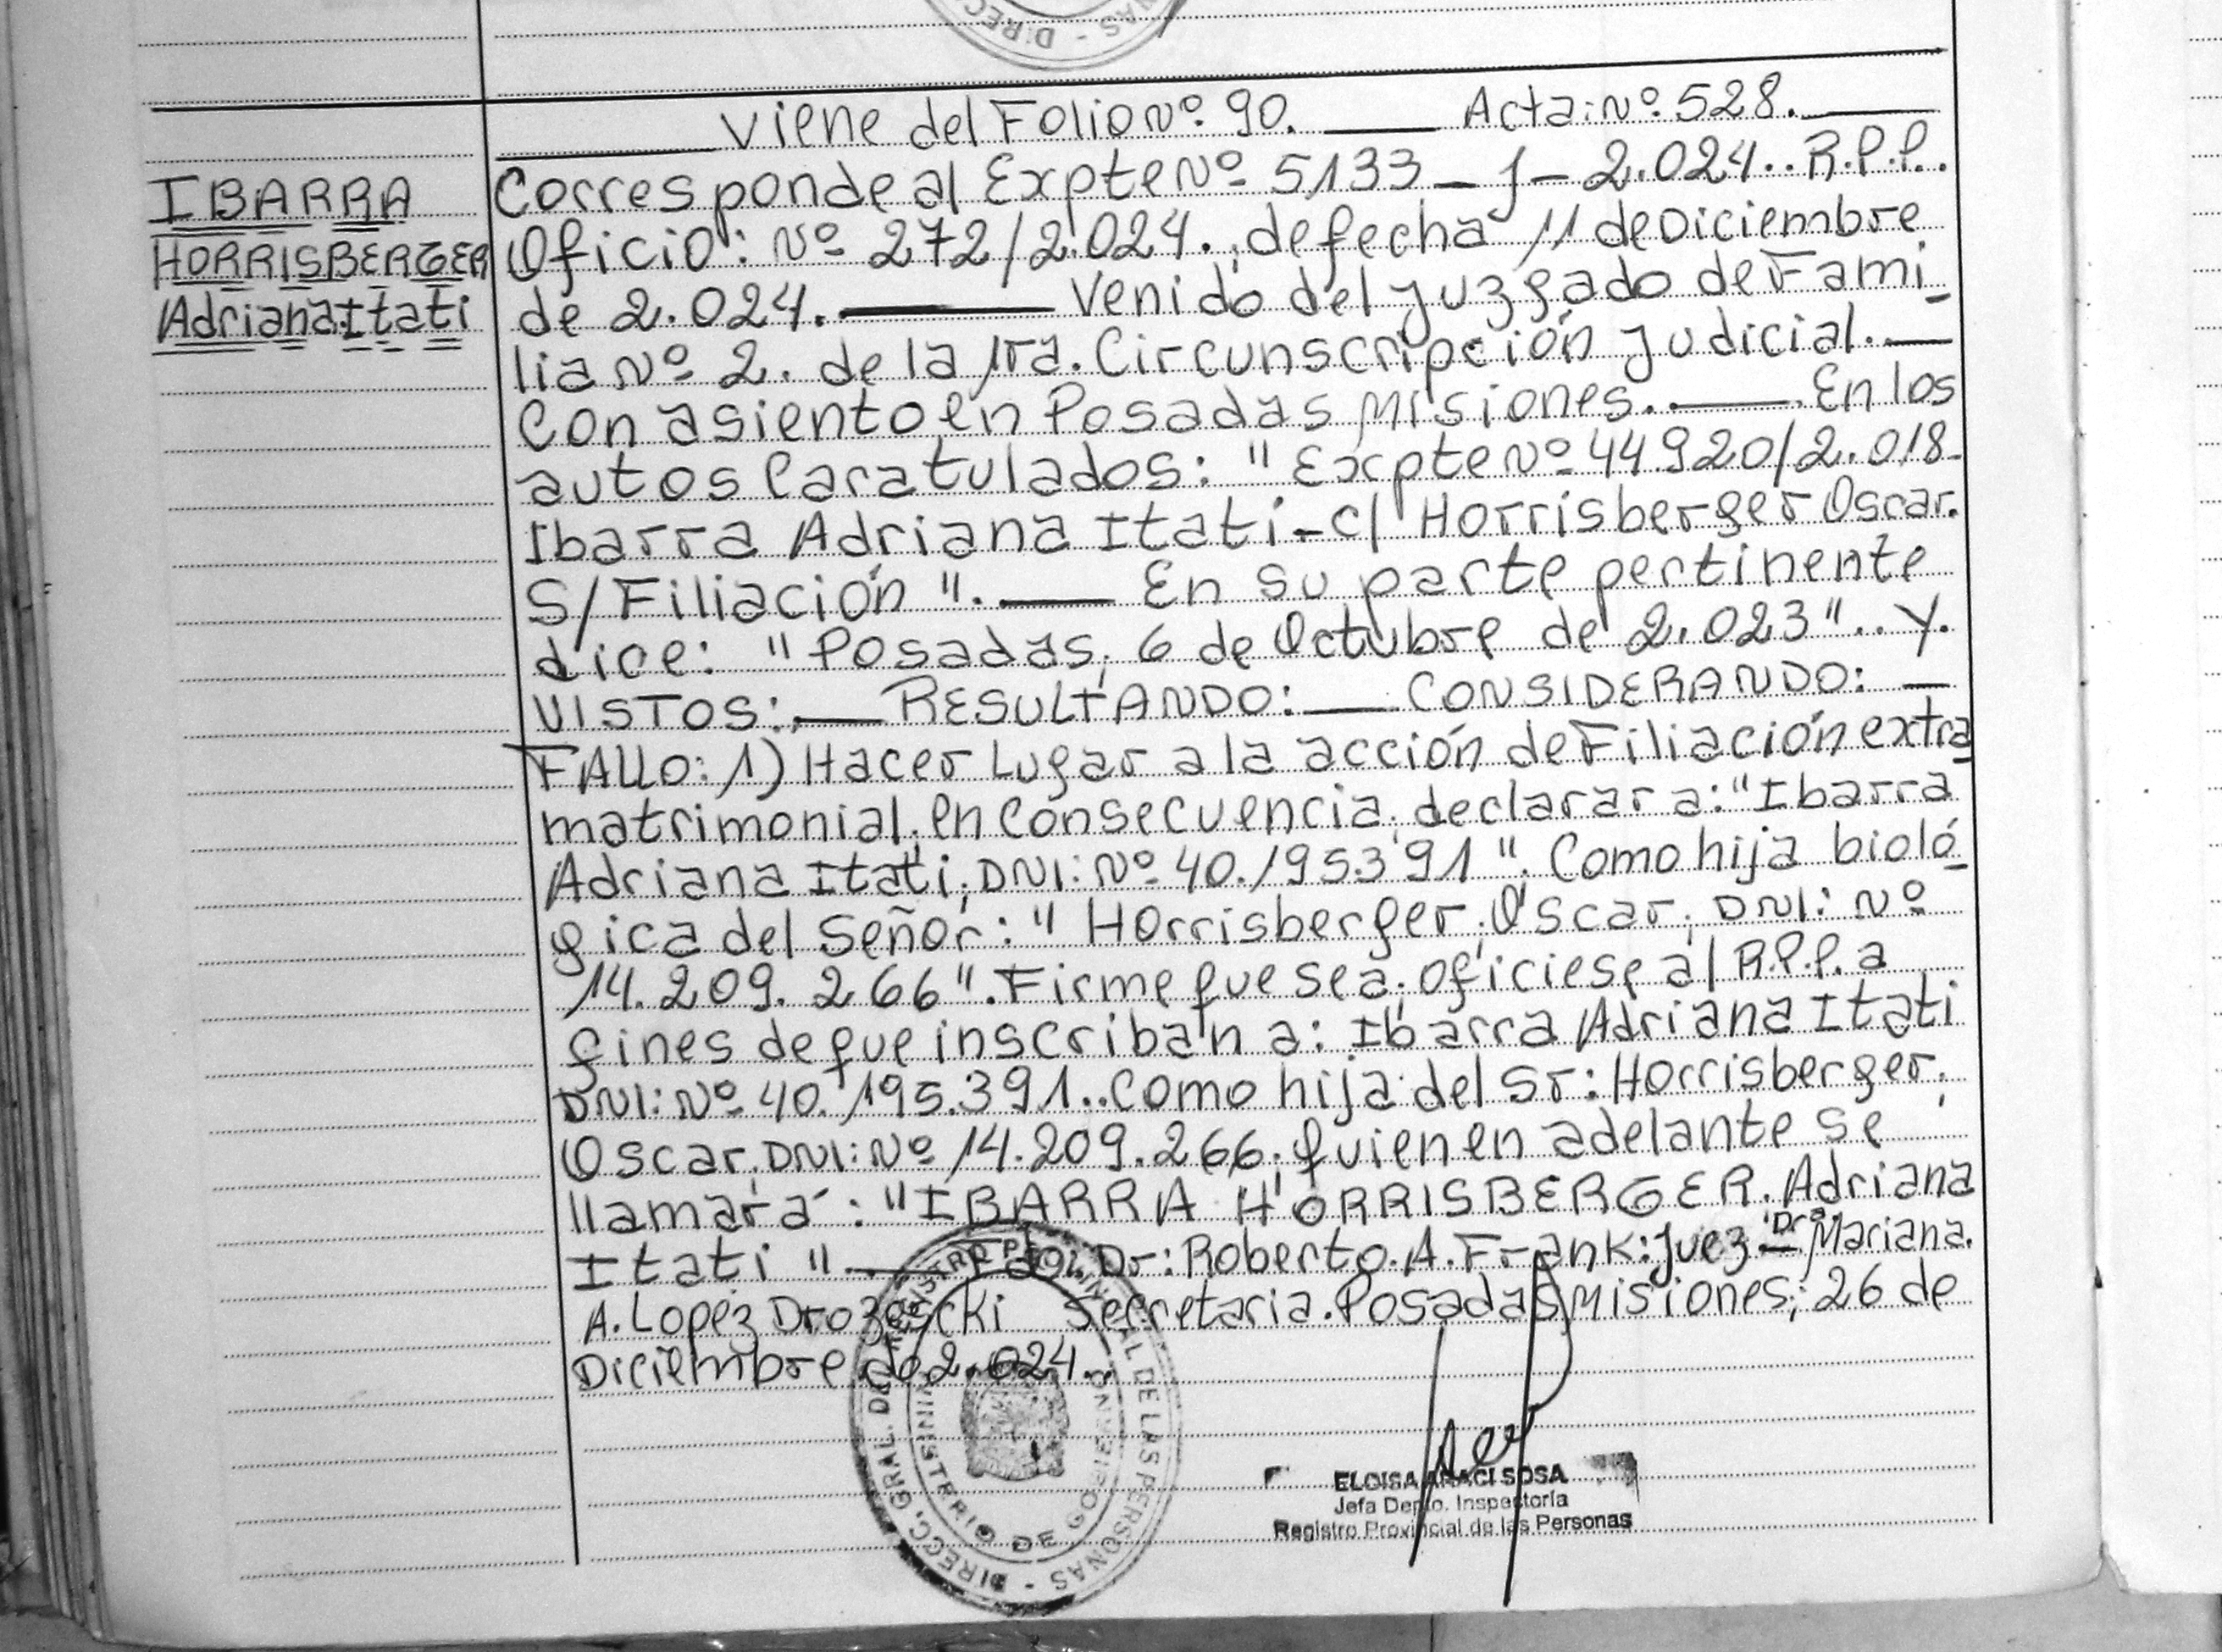 Viene del Folio Nº 90. Acta: Nº 528.
IBARRA
HORRISBERGER
Adriana Itati
Corresponde al Expte Nº 5133 - J - 2.024.. R.P.P..
Oficio: Nº 272/2.024. de fecha 11 de Diciembre
de 2.024. Venido del Juzgado de Fami-
lia Nº 2. de la 1ra. Circunscripción Judicial.
Con asiento en Posadas Misiones. En los
autos Caratulados: "Expte Nº 44920/2.018-
Ibarra Adriana Itati - c/ Horrisberger Oscar.
S/Filiación". En su parte pertinente
dice: "Posadas, 6 de Octubre de 2.023".. Y.
VISTOS: RESULTANDO: CONSIDERANDO:
FALLO: 1) Hacer Lugar a la acción de Filiación extra
matrimonial, en Consecuencia, declarar a: "Ibarra
Adriana Itati, DNI: Nº 40.195391". Como hija bioló-
gica del Señor: "Horrisberger, Oscar, DNI: Nº
14.209.266". Firme que sea, ofíciese al R.P.P. a
fines de que inscriban a: Ibarra Adriana Itati
DNI: Nº 40.195.391.. Como hija del Sr: Horrisberger,
Oscar, DNI: Nº 14.209.266, quien en adelante se
llamará: "IBARRA HORRISBERGER. Adriana
Itati". Fdo: Dr: Roberto. A. Frank: Juez - Dra. Mariana.
A. Lopez Secretaria. Posadas Misiones, 26 de
Diciembre de 2.024.
DIRECC. GRAL. DEL REGISTRO PROVINCIAL DE LAS PERSONAS
MINISTERIO DE GOBIERNO
ELOISA ARACI SOSA
Jefa Depto. Inspectoría
Registro Provincial de las Personas